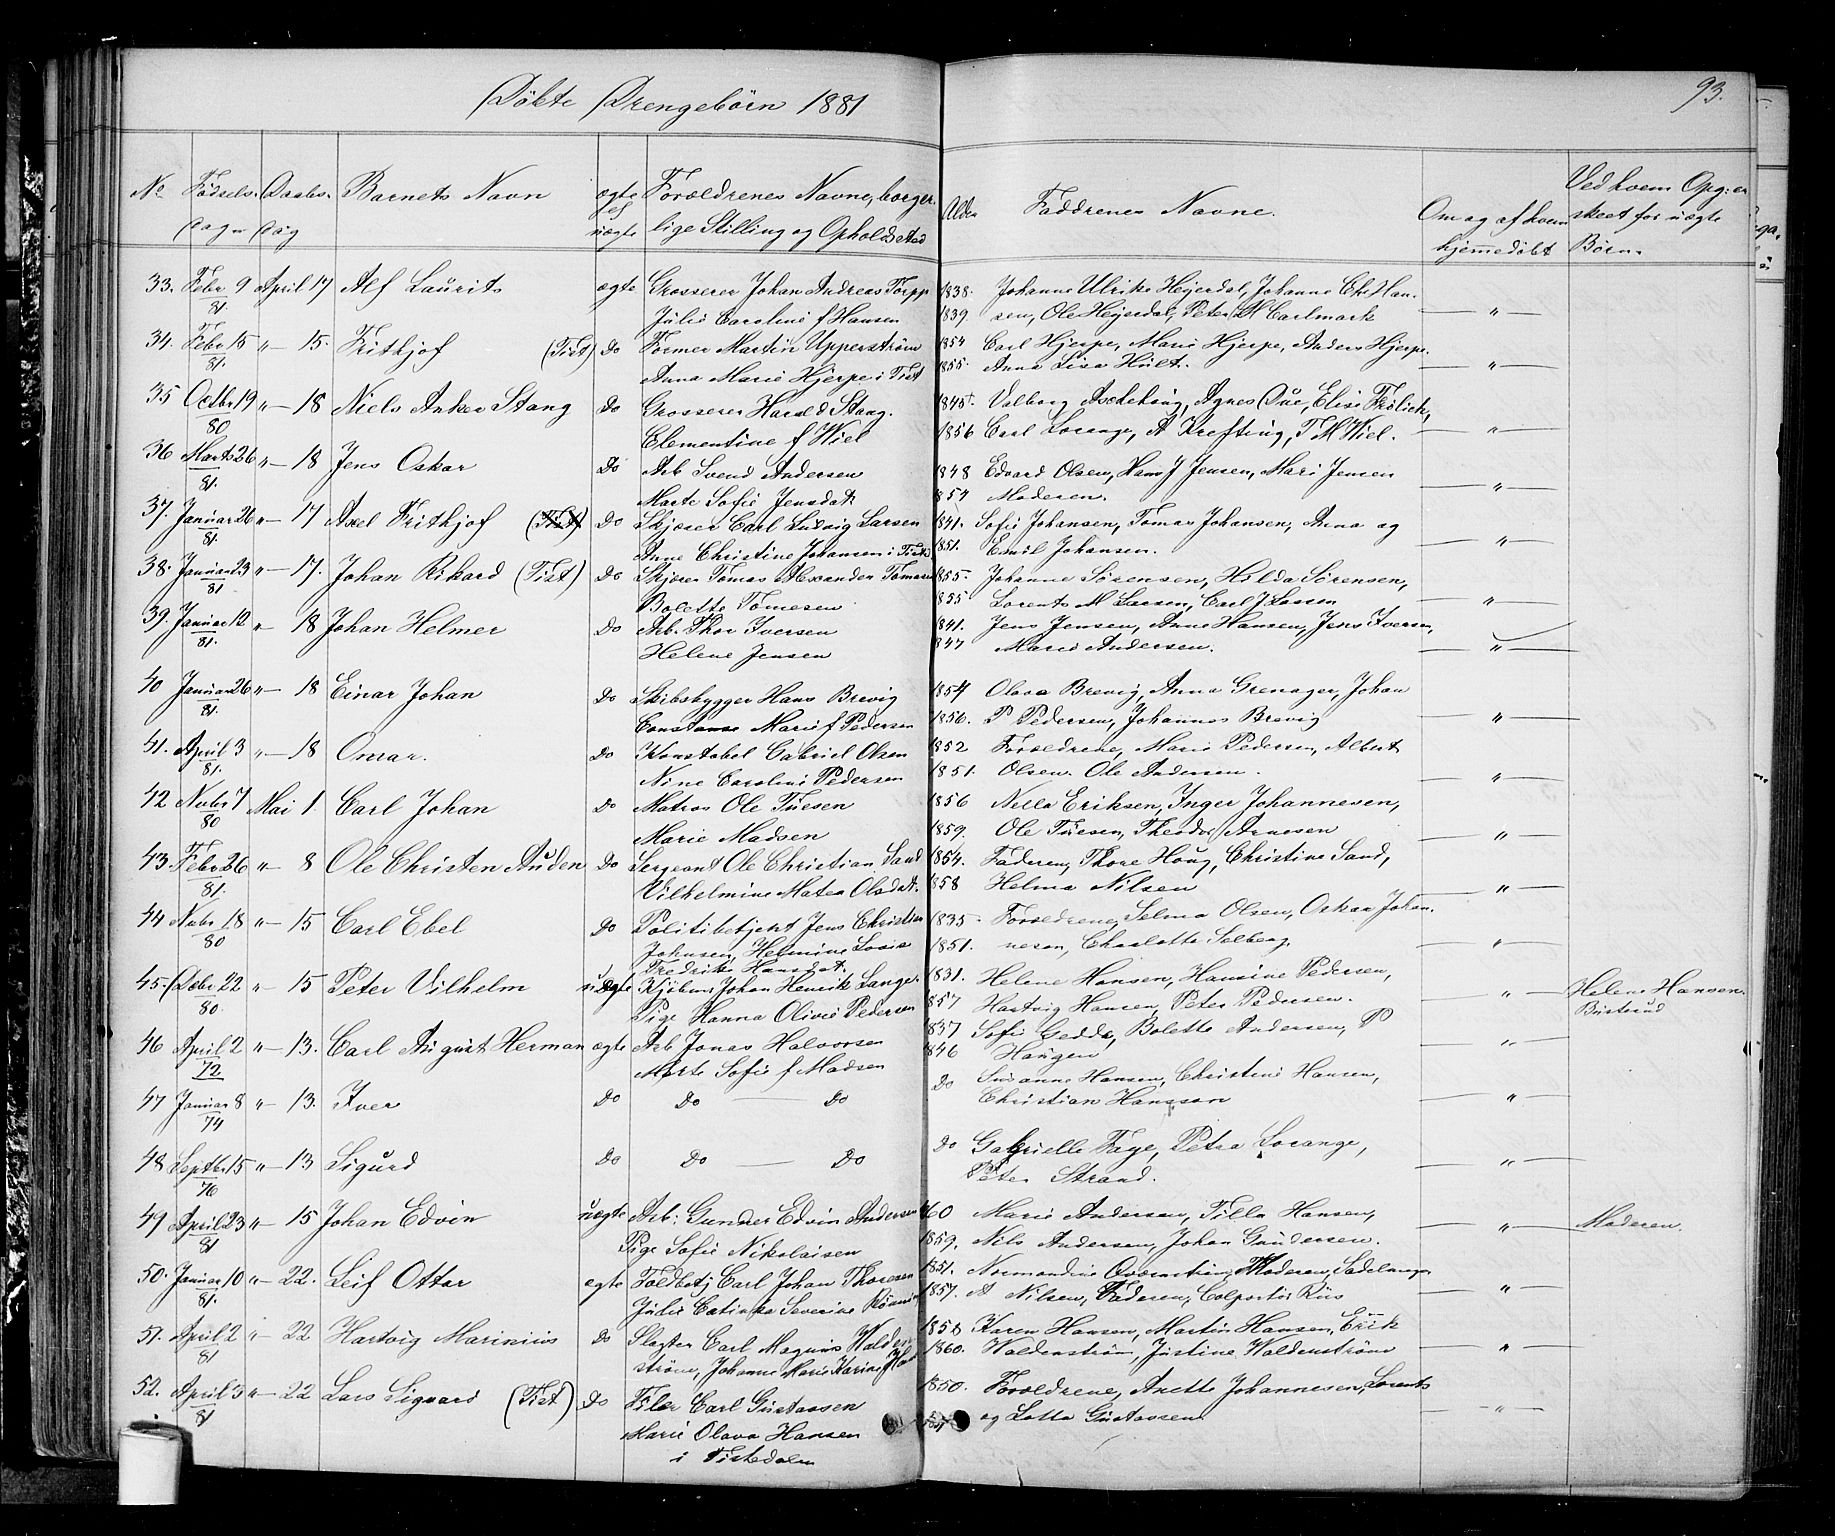 Döbte Drengebörn 1881
93.
No Fødsels- Daabs- Barnets Navn ægte Forældrenes Navne, borger- Alder Faddrenes Navne. Om og af hvem Ved hvem Opg: er
Dag Dag el uægte lige Stilling og Opholdssted hjemmedöbt skeet for uægte Börn.
33. Febr 9 April 17 Alf Laurits ægte Grosserer Johan Andreas Torpp 1838. Johanne Ulrike Hejerdal, Johanne Han-
81. Julie Caroline f Hansen 1839. sen, Ole Hejerdal, Peter M Carlmark — " —
34. Febr 15 " — 15. Frithjof (Tist) Do Former Martin Upperström 1854 Carl Hjerpe, Marie Hjerpe, Anders Hjerpe.
81. Anna Marie Hjerpe i Tist 1855. Anna Lisa Hult. — " —
35 Octbr 19 " — 18 Niels Anker Stang Do Grosserer Harald Stang. 1845. Valborg Aschehoug, Agnes Due, Elise Frölich,
80 Clementine f Wiel 1856 Carl Lorange, A Krefting, T M Wiel. — " —
36 Marts 26 " — 18 Jens Oskar Do Arb Svend Andersen 1848 Edvard Olsen, Hans J Jensen, Mari Jensen
81. Marte Sofie Jensdat. 1854 Moderen. — " —
37. Januar 26 " — 17 Axel Frithjof (Tist) Do Skjærer Carl Ludvig Larsen 1841. Sofie Johansen, Tomas Johansen, Anna og
81. Anne Christine Johansen i Tist 1851. Emil Johansen. — " —
38. Januar 23 " — 17. Johan Rikard (Tist) Do Skjerer Tomas Alexander Tomesen 1855. Johanne Sörensen, Hilda Sörensen,
81 Bolette Tomesen 1855 Lorents M Larsen, Carl J Larsen — " —
39. Januar 12 " 18 Johan Helmer Do Arb. Thor Iversen 1841. Jens Jensen, Anne Hansen, Jens Iversen,
81. Helene Jensen 1847 Marie Andersen. — " —
40 Januar 26 " — 18 Einar Johan Do Skibsbygger Hans Brevig 1854 Olava Brevig, Anna Grenager, Johan
81. Constanse Marie f Pedersen 1856. P Pedersen, Johannes Brevig — " —
41. April 3 " — 18 Omar. Do Konstabel Gabriel Olsen 1852 Forældrene, Marie Pedersen, Albert
81. Nine Caroline Pedersen 1851. Olsen. Ole Andersen. — " —
42 Nvbr 7 Mai 1. Carl Johan Do Matros Ole Tuesen 1856 Nella Eriksen, Inger Johannesen,
80 Marie Madsen 1859. Ole Tuesen, Theodor Arnesen — " —
43. Febr 26 " — 8 Ole Christen Auden Do Sergeant Ole Christian Sand 1854. Faderen, Thore Houg, Christine Sand,
81. Vilhelmine Matea Olsdat. 1858 Helma Nilsen — " —
44 Nvbr 18 " — 15 Carl Ebel Do Politibetjent Jens Christian 1835 Forældrene, Selma Olsen, Oskar Johan-
80 Johnsen, Helmine Lovise 1851. nesen, Charlotte Solberg — " —
Fredrikke Hansdat.
45. Decbr 22 " — 15 Peter Vilhelm uægte Kjöbm. Johan Henrik Lange. 1831. Helene Hansen, Hansine Pedersen,
80. Pige Hanna Olivie Pedersen 1857 Hartvig Hansen, Peter Pedersen. — " — Helene Hansen.
46 April 2 " — 13. Carl August Herman ægte Arb Jonas Halvorsen 1837 Sofie Gedde, Bolette Andersen, P
72 Marte Sofie f Madsen 1846 Haugen — " —
47 Januar 8 " — 13. Iver Do Do — Do Do Susanne Hansen, Christine Hansen,
74 Christian Hansson — " —
48 Septbr 15 " — 13 Sigurd Do Do — Do Do Gabrielle Faye, Petra Lorange,
76 Peter Strand. — " —
49 April 23 " — 15 Johan Edvin uægte Arb: Gunder Edvin Andersen 60 Marie Andersen, Tilla Hansen,
81 Pige Sofie Nikolaisen 1859. Nils Andersen, Johan Gundersen. — " — Moderen.
50. Januar 10 " — 22. Leif Ottar ægte Toldbetj Carl Johan Thoresen 1851. Normandine Moderen,
81. Julie Catinka Severine 1857. A Nilsen, Faderen, Colportör Riis — " —
51. April 2 " — 22 Hartvig Marinius Do Slagter Carl Magnus Walden- 1858 Karen Hansen, Martin Hansen, Erik
81 ström, Johanne Marie Karine 1860. Waldenström, Justine Waldenström — " —
52. April 3 " — 22 Lars Sigvard (Tist) Do Filer Carl Gustavsen 1850. Forældrene, Anette Johannesen, Lorents
81 Marie Olava Hansen og Lotta Gustavsen — " —
i Tistedalen